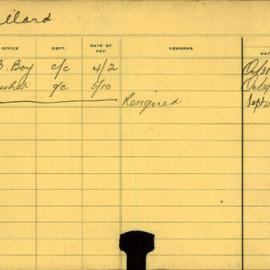 llard
OFFICE DEPT. RATE OF PAY REMARKS DAT
B. Boy c/c 4/2
c/c 5/10
Resigned Sept 2